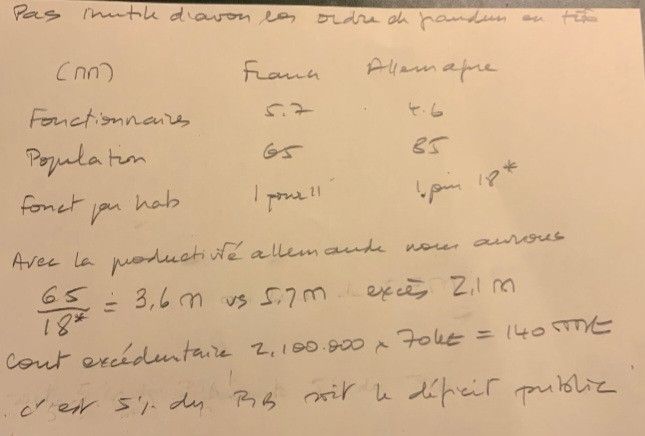 Pas inutile d'avoir les ordre de grandeur en tête
(m) France Allemagne
Fonctionnaires 5.7 4.6
Population 65 85
Fonct par hab 1 pour 11 1 pour 18*
Avec la productivité allemande nous aurions
65/18* = 3,6 m vs 5,7 m excès 2,1 m
Cout excédentaire 2,100.000 x 70k€ = 140
c'est 5% du soit le déficit public